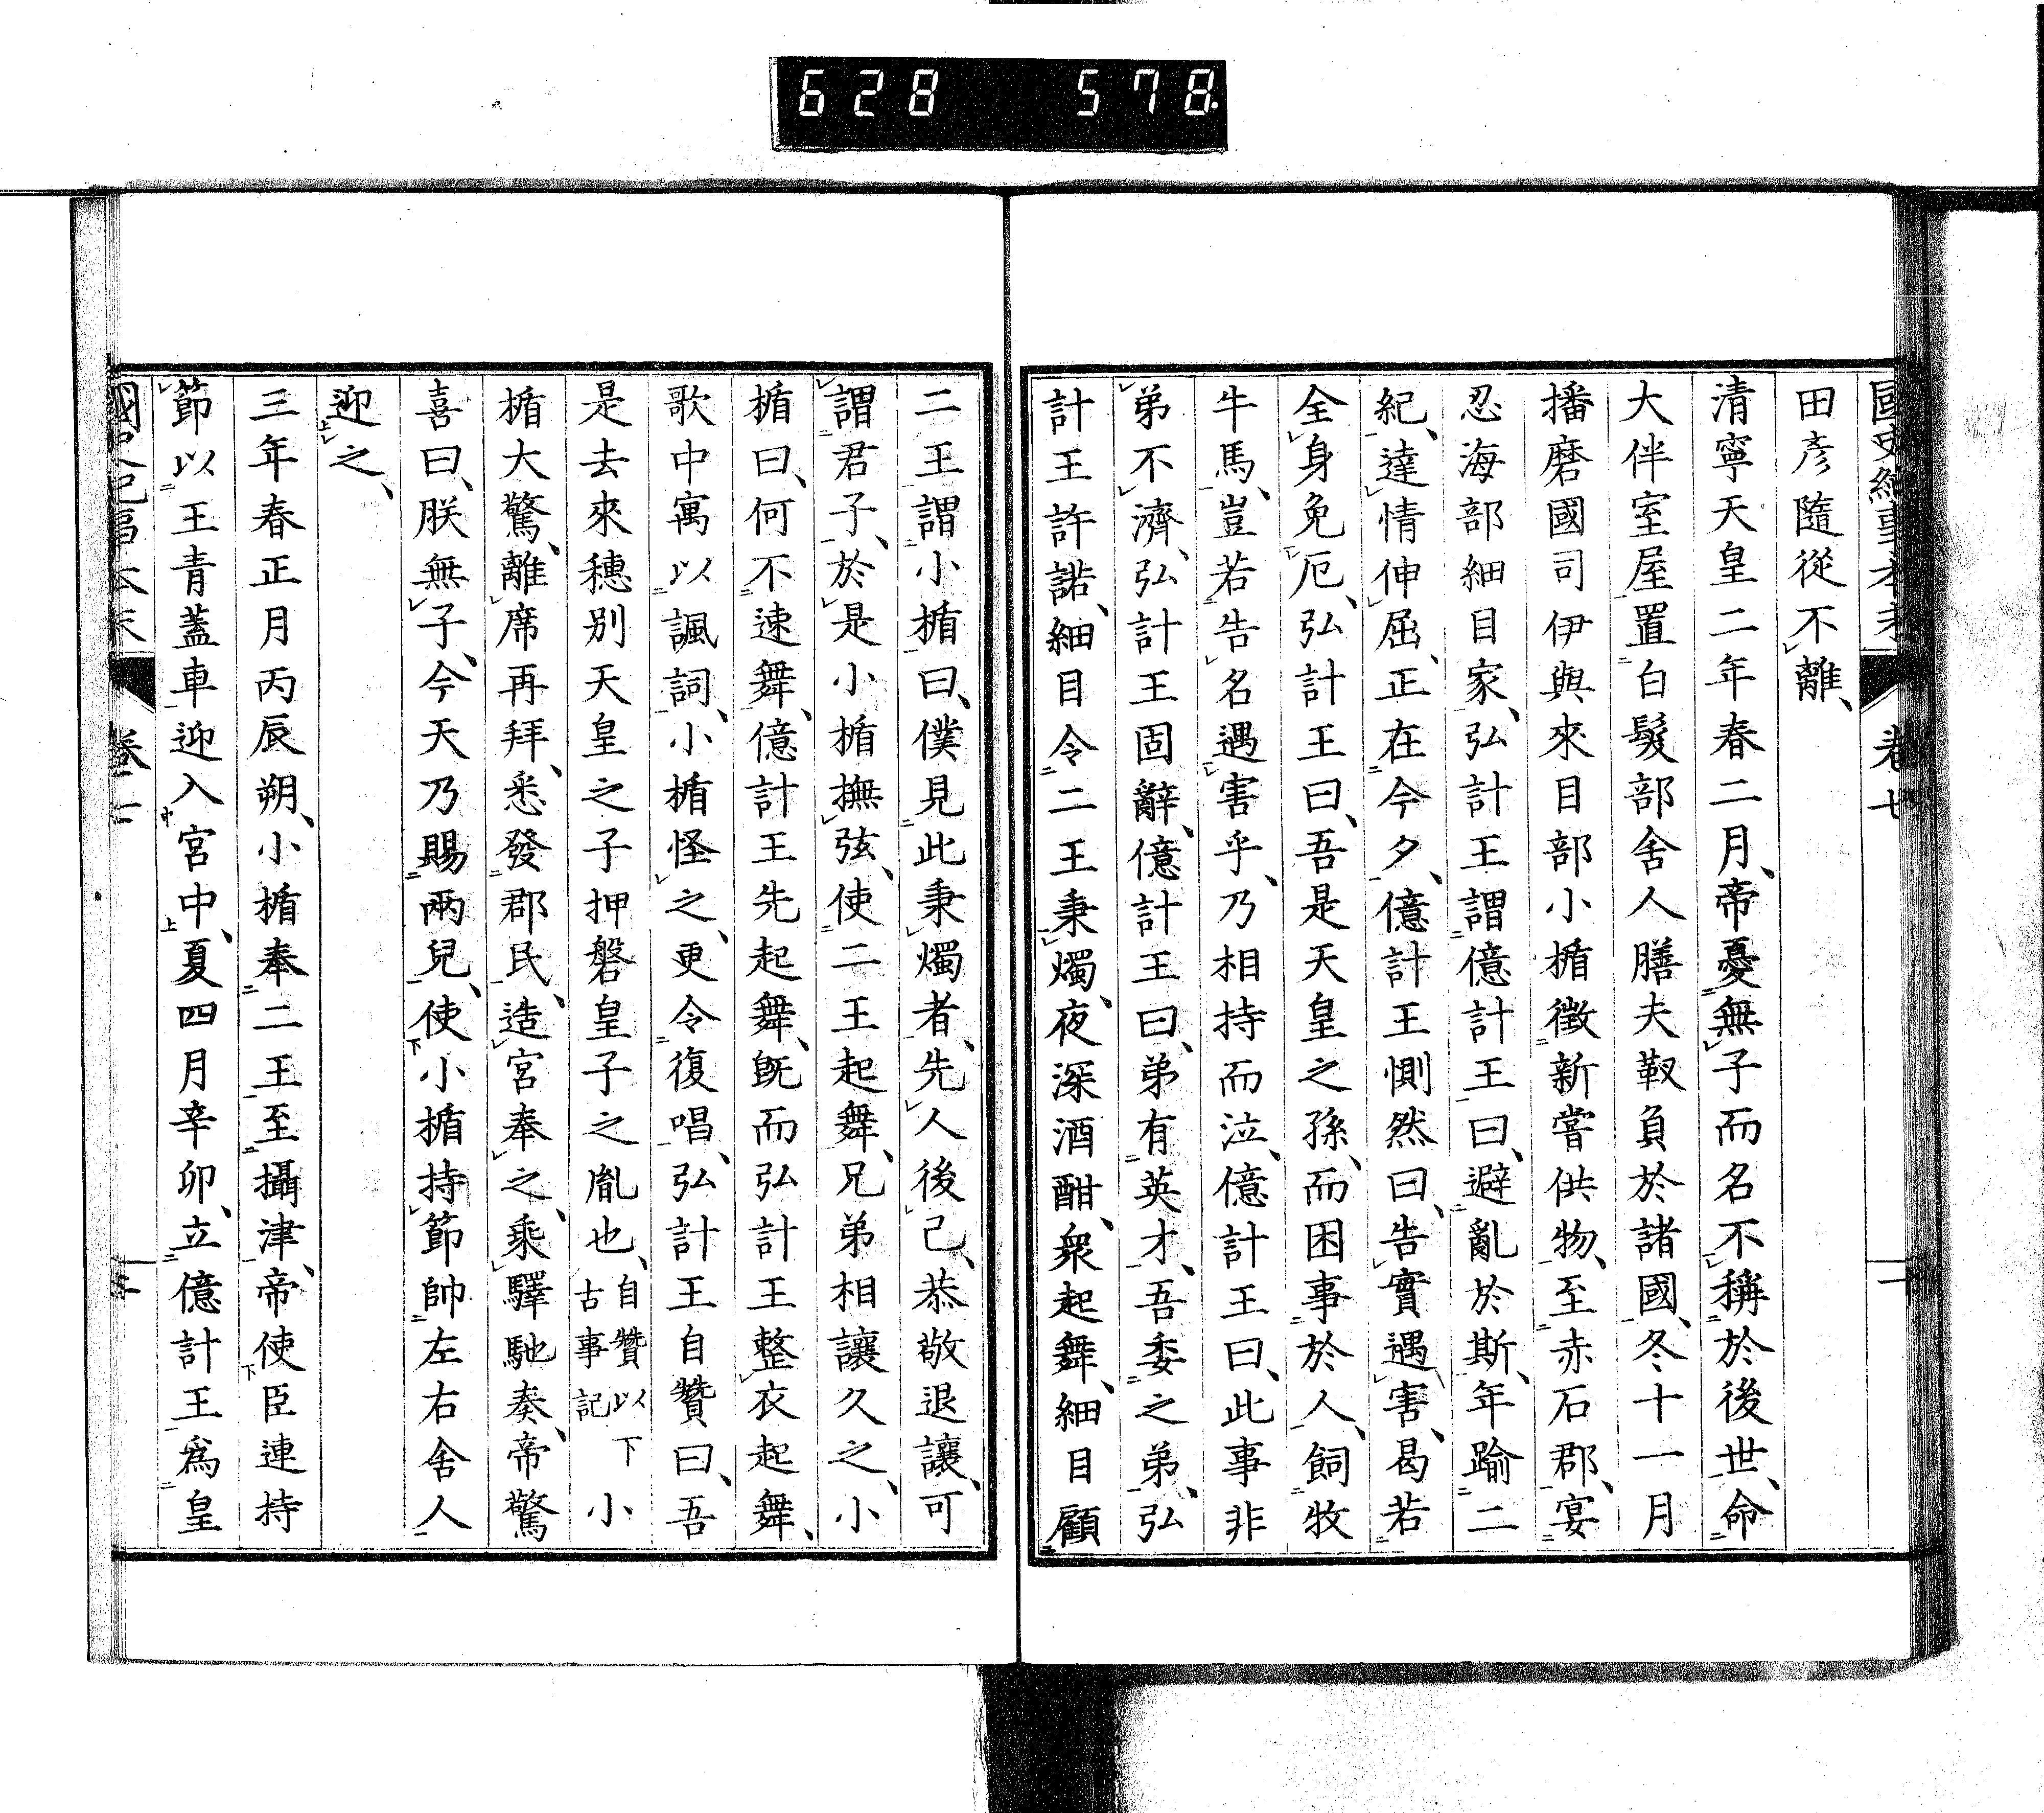 628 578.
田彥隨從不離、
清寧天皇二年春二月、帝憂無子而名不稱於後世、命
大伴室屋置白髮部舍人膳夫靫負於諸國、冬十一月
播磨國司伊與來目部小楯徵新嘗供物、至赤石郡、宴
忍海部細目家、弘計王謂億計王曰、避亂於斯、年踰二
紀、達情伸屈、正在今夕、億計王惻然曰、告實遇害、曷若
全身免厄、弘計王曰、吾是天皇之孫、而困事於人、飼牧
牛馬、豈若告名遇害乎、乃相持而泣、億計王曰、此事非
弟不濟、弘計王固辭、億計王曰、弟有英才、吾委之弟、弘
計王許諾、細目令二王秉燭、夜深酒酣、衆起舞、細目顧
二王謂小楯曰、僕見此秉燭者、先人後己、恭敬退讓、可
謂君子、於是小楯撫弦、使二王起舞、兄弟相讓久之、小
楯曰、何不速舞、億計王先起舞、旣而弘計王整衣起舞、
歌中寓以諷詞、小楯怪之、更令復唱、弘計王自贊曰、吾
是去來穗別天皇之子押磐皇子之胤也、自贊以下古事記小
楯大驚、離席再拜、悉發郡民、造宮奉之、乘驛馳奏、帝驚
喜曰、朕無子、今天乃賜兩兒、使小楯持節帥左右舍人
迎之、
三年春正月丙辰朔、小楯奉二王至攝津、帝使臣連持
節以王青蓋車迎入宮中、夏四月辛卯、立億計王爲皇